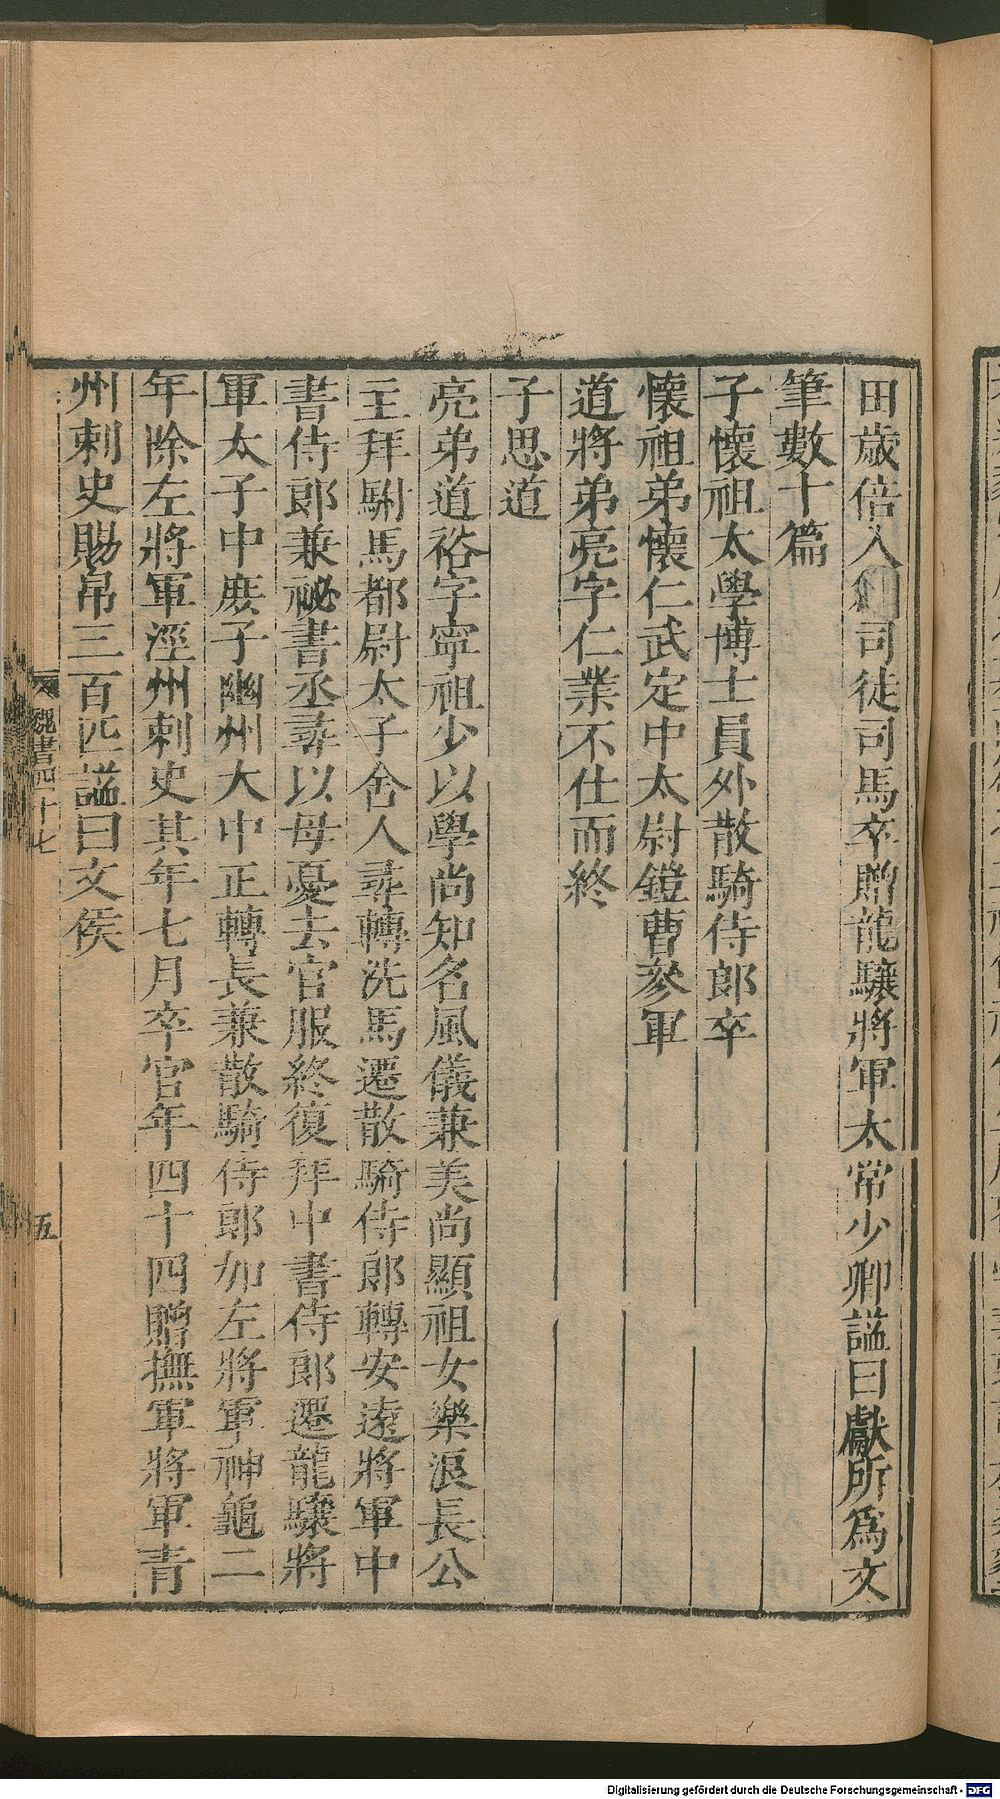 田歲倍入 司徒司馬卒贈龍驤將軍太常少卿諡曰獻所爲文
筆數十篇
子懷祖太學博士員外散騎侍郎卒
懷祖弟懷仁武定中太尉鎧曹參軍
道將弟亮字仁業不仕而終
子思道
亮弟道裕字寧祖少以學尚知名風儀兼美尚顯祖女樂浪長公
主拜駙馬都尉太子舍人尋轉洗馬遷散騎侍郎轉安遠將軍中
書侍郎兼祕書丞尋以母憂去官服終復拜中書侍郎遷龍驤將
軍太子中庶子幽州大中正轉長兼散騎侍郎加左將軍神龜二
年除左將軍涇州刺史其年七月卒官年四十四贈撫軍將軍青
州刺史賜帛三百匹諡曰文侯
魏書四十七
五
Digitalisierung gefördert durch die Deutsche Forschungsgemeinschaft - DFG